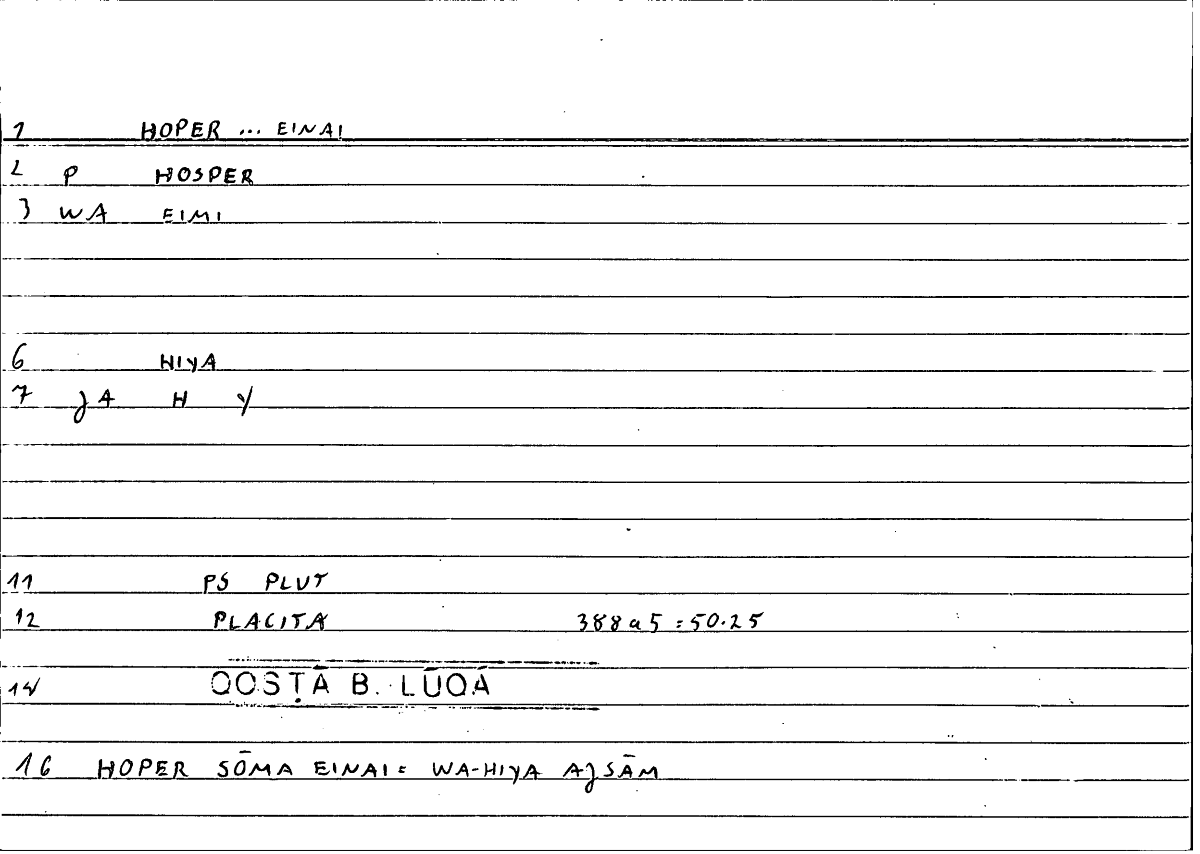 1 HOPER ... EINAI
2 P HOSPER
3 WA EIMI
6 HIYA
7 JA H Y
11 PS PLUT
12 PLACITA 388a5 = 50.25
14 QOSṬĀ B. LŪQĀ
16 HOPER SŌMA EINAI = WA-HIYA AJSĀM